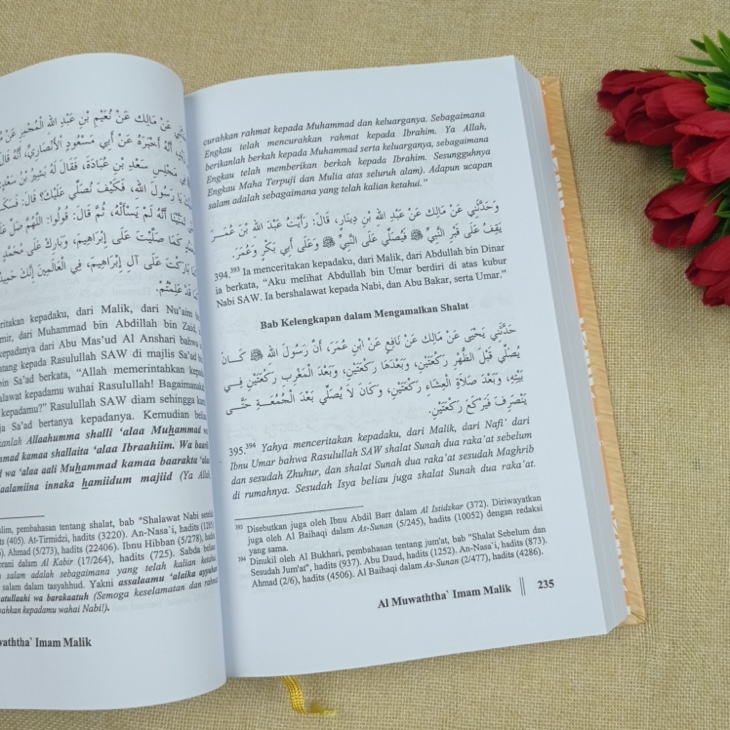 ـي عَنْ مَالِك عَنْ نُعَيْمِ بْنِ عَبْدِ اللهِ الْمُجْمِرِ عَنْ
أَنَّهُ أَخْبَرَهُ عَنْ أَبِي مَسْعُودٍ الْأَنْصَارِيِّ، أَنَّهُ قَالَ
مَجْلِسِ سَعْدِ بْنِ عُبَادَةَ، فَقَالَ لَهُ بَشِيرُ بْنُ سَعْدٍ
يَا رَسُولَ اللهِ، فَكَيْفَ نُصَلِّي عَلَيْكَ؟ قَالَ:
أَنَّهُ لَمْ يَسْأَلْهُ، ثُمَّ قَالَ: قُولُوا: اللَّهُمَّ صَلِّ
كَمَا صَلَّيْتَ عَلَى إِبْرَاهِيمَ، وَبَارِكْ عَلَى مُحَمَّدٍ
بَارَكْتَ عَلَى آلِ إِبْرَاهِيمَ، فِي الْعَالَمِينَ إِنَّكَ
قَدْ عَلِمْتُمْ.
ritakan kepadaku, dari Malik, dari Nu'aim
mir, dari Muhammad bin Abdillah bin Zaid,
kepadanya dari Abu Mas'ud Al Anshari bahwa
tang kepada Rasulullah SAW di majlis Sa'ad
in Sa'ad berkata, "Allah memerintahkan
alawat kepadamu wahai Rasulullah! Bagaimana
kepadamu?" Rasulullah SAW diam sehingga
ja Sa'ad bertanya kepadanya. Kemudian
kanlah Allaahumma shalli 'alaa Muhammad
mmad kamaa shallaita 'alaa Ibraahiim. Wa
d wa 'alaa aali Muhammad kamaa baarakta
aalamiina innaka hamiidum majiid (Ya
slim, pembahasan tentang shalat, bab "Shalawat Nabi
ts (405). At-Tirmidzi, hadits (3220). An-Nasa`i, hadits
). Ahmad (5/273), hadits (22406). Ibnu Hibban (5/278),
rani dalam Al Kabir (17/264), hadits (725). Sabda
salam adalah sebagaimana yang telah kalian
salam dalam tasyahhud. Yakni assalaamu 'alaika
atullaahi wa barakaatuh (Semoga keselamatan dan
ahkan kepadamu wahai Nabi!).
waththa` Imam Malik
curahkan rahmat kepada Muhammad dan keluarganya. Sebagaimana
Engkau telah mencurahkan rahmat kepada Ibrahim. Ya Allah,
berikanlah berkah kepada Muhammad serta keluarganya, sebagaimana
Engkau telah memberikan berkah kepada Ibrahim. Sesungguhnya
Engkau Maha Terpuji dan Mulia atas seluruh alam). Adapun ucapan
salam adalah sebagaimana yang telah kalian ketahui."
وَحَدَّثَنِي عَنْ مَالِك عَنْ عَبْدِ اللهِ بْنِ دِينَارٍ، قَالَ: رَأَيْتُ عَبْدَ اللهِ بْنَ عُمَـرَ
يَقِفُ عَلَى قَبْرِ النَّبِيِّ ﷺ فَيُصَلِّي عَلَى النَّبِيِّ ﷺ وَعَلَى أَبِي بَكْرٍ وَعُمَرَ.
394.³⁹³ Ia menceritakan kepadaku, dari Malik, dari Abdullah bin Dinar
ia berkata, "Aku melihat Abdullah bin Umar berdiri di atas kubur
Nabi SAW. Ia bershalawat kepada Nabi, dan Abu Bakar, serta Umar."
Bab Kelengkapan dalam Mengamalkan Shalat
حَدَّثَنِي يَحْيَى عَنْ مَالِك عَنْ نَافِعٍ عَنْ ابْنِ عُمَرَ، أَنَّ رَسُولَ اللهِ ﷺ كَـانَ
يُصَلِّي قَبْلَ الظُّهْرِ رَكْعَتَيْنِ، وَبَعْدَهَا رَكْعَتَيْنِ، وَبَعْدَ الْمَغْرِبِ رَكْعَتَيْنِ فِـي
بَيْتِهِ، وَبَعْدَ صَلَاةِ الْعِشَاءِ رَكْعَتَيْنِ، وَكَانَ لَا يُصَلِّي بَعْدَ الْجُمُعَـةِ حَتَّـى
يَنْصَرِفَ فَيَرْكَعَ رَكْعَتَيْنِ.
395.³⁹⁴ Yahya menceritakan kepadaku, dari Malik, dari Nafi' dari
Ibnu Umar bahwa Rasulullah SAW shalat Sunah dua raka'at sebelum
dan sesudah Zhuhur, dan shalat Sunah dua raka'at sesudah Maghrib
di rumahnya. Sesudah Isya beliau juga shalat Sunah dua raka'at.
³⁹³ Disebutkan juga oleh Ibnu Abdil Barr dalam Al Istidzkar (372). Diriwayatkan
juga oleh Al Baihaqi dalam As-Sunan (5/245), hadits (10052) dengan redaksi
yang sama.
³⁹⁴ Dinukil oleh Al Bukhari, pembahasan tentang jum'at, bab "Shalat Sebelum dan
Sesudah Jum'at", hadits (937). Abu Daud, hadits (1252). An-Nasa`i, hadits (873).
Ahmad (2/6), hadits (4506). Al Baihaqi dalam As-Sunan (2/477), hadits (4286).
Al Muwaththa` Imam Malik || 235